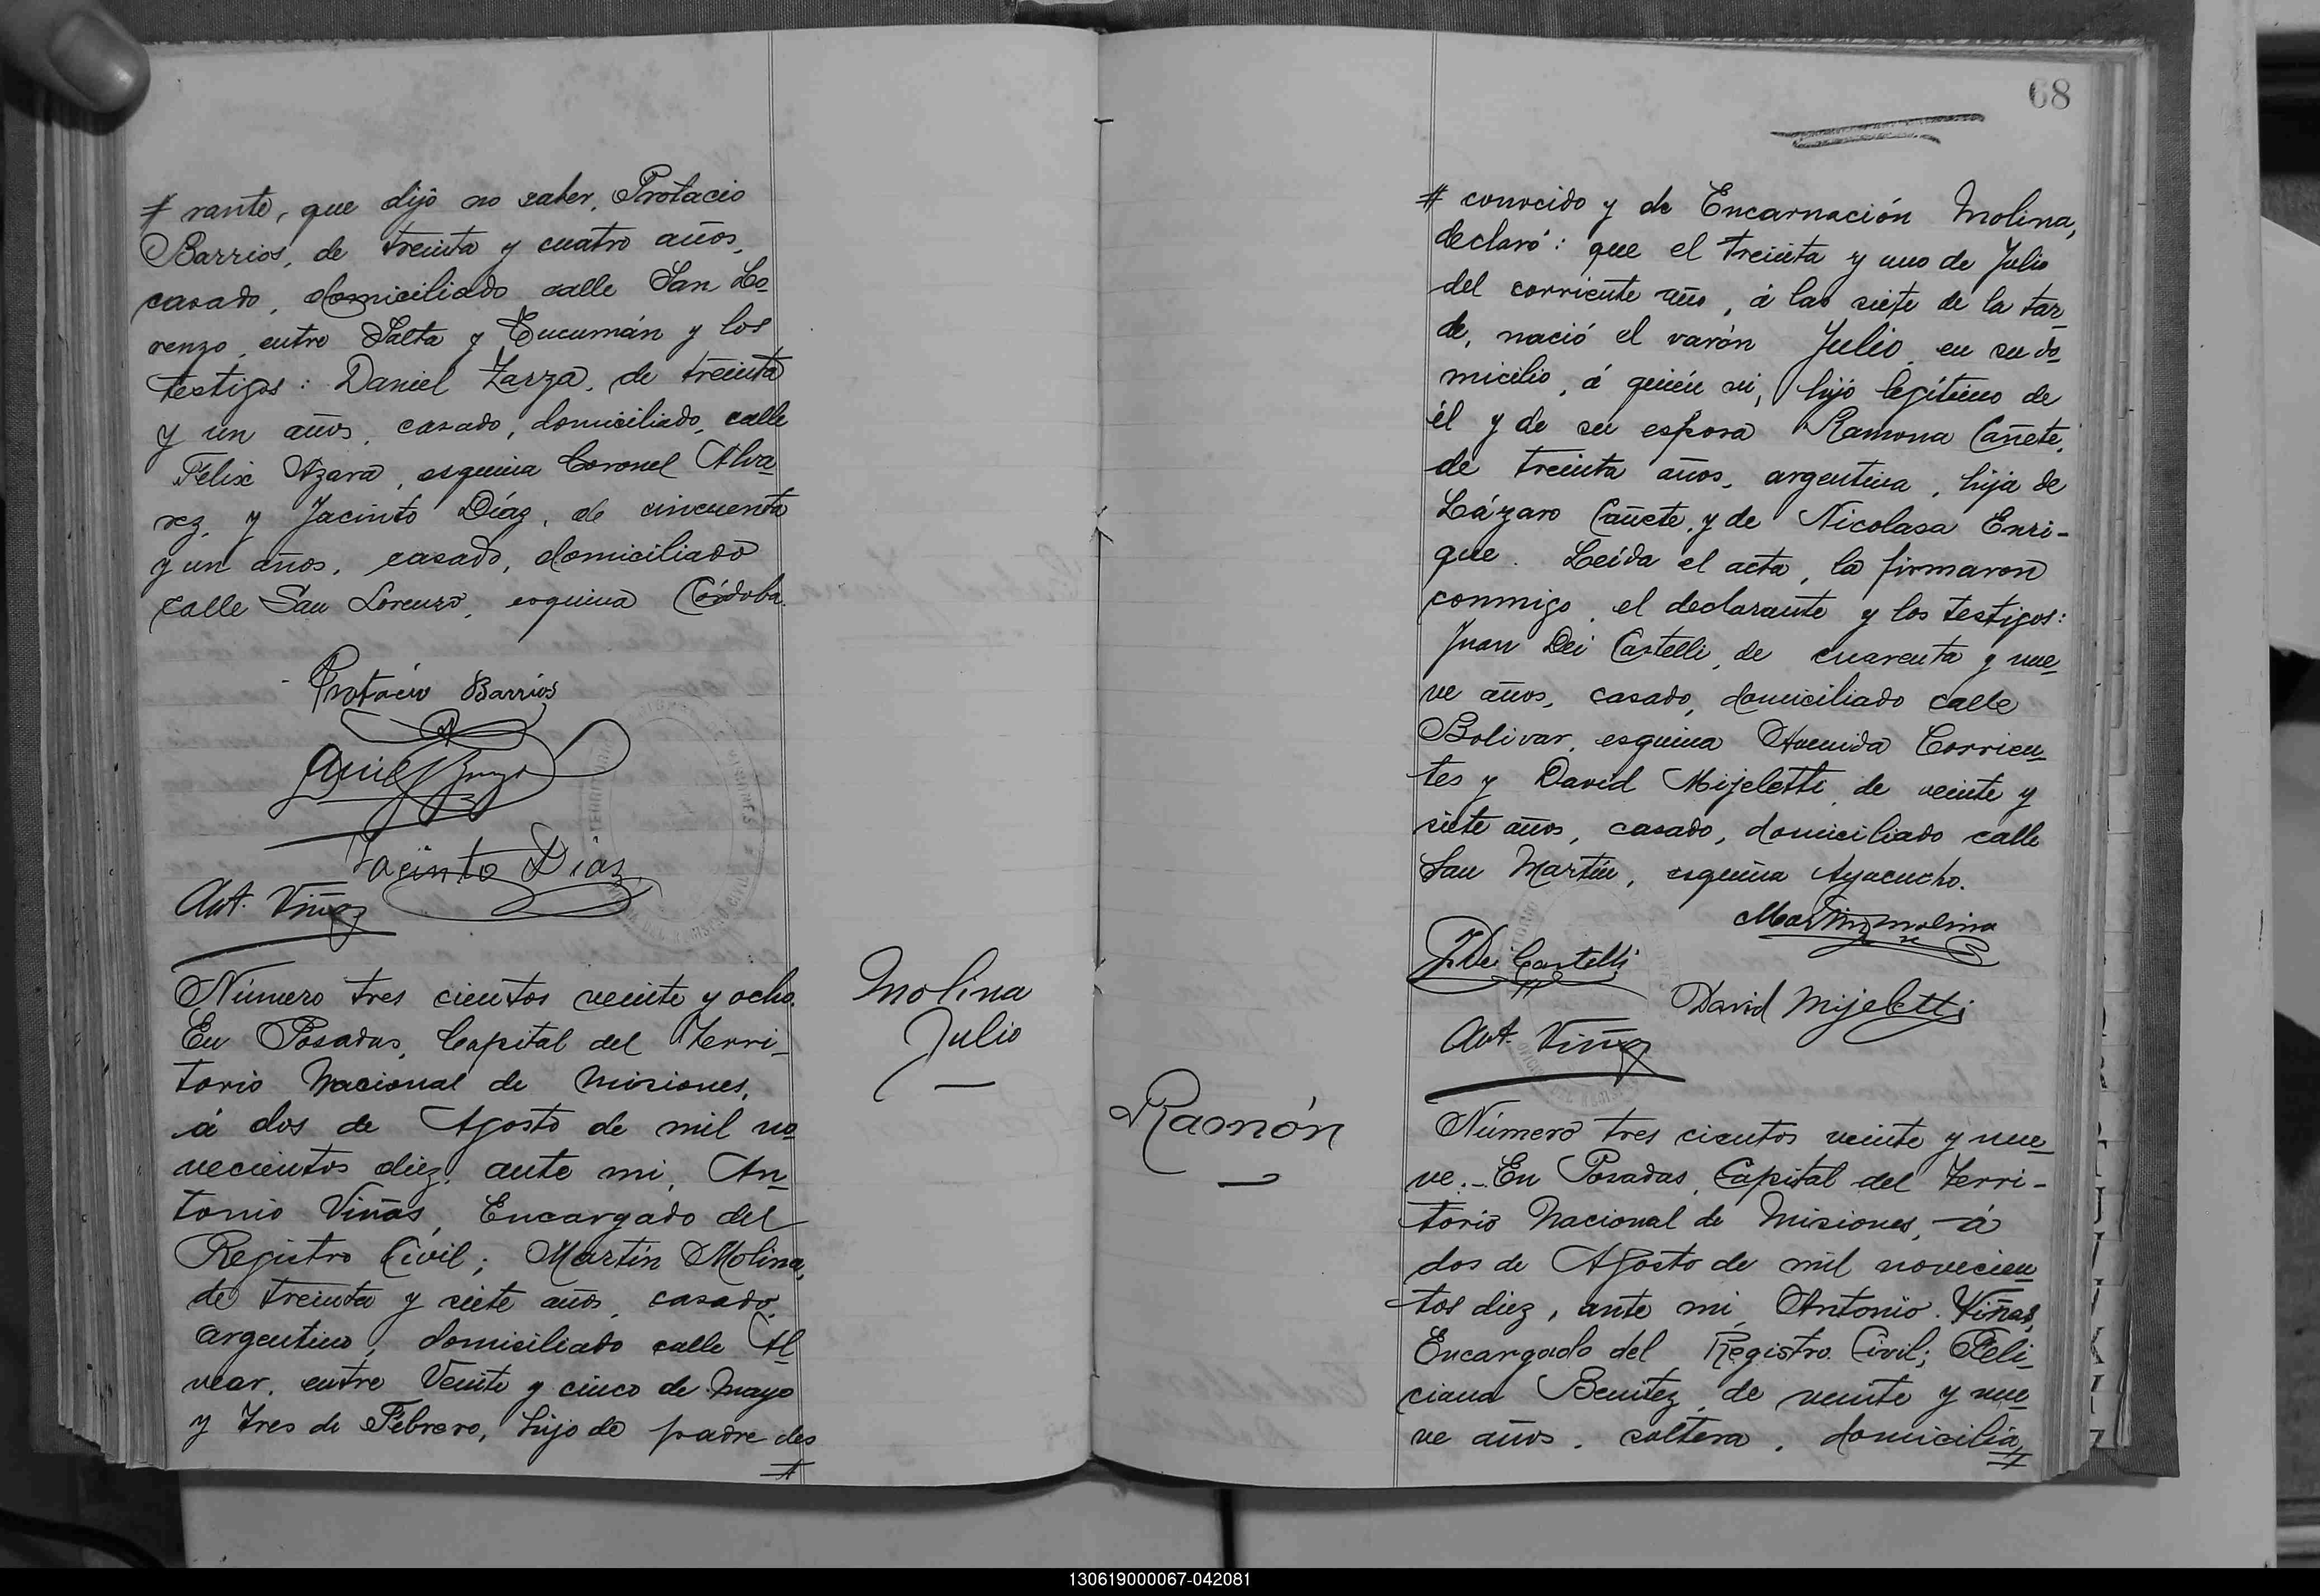 # rante, que dijó no saber, Protacio
Barrios, de treinta y cuatro años,
casado, domiciliado calle San Lo
renzo, entre Salta y Tucumán y los
testigos: Daniel Zarza, de treinta
y un años, casado, domiciliado, calle
Felix Azara, esquina Coronel Alva
rez, y Jacinto Díaz, de cincuenta
y un años, casado, domiciliado
calle San Lorenzo, esquina Córdoba.
Protacio Barrios
Jacinto Diaz
Ant. Viñas
Número tres cientos veinte y ocho.
En Posadas, Capital del Terri-
torio Nacional de Misiones,
á dos de Agosto de mil no
vecientos diez, ante mi, An
tonio Viñas, Encargado del
Registro Civil; Martín Molina,
de treinta y siete años, casado,
argentino, domiciliado calle Al
vear, entre Veinte y cinco de Mayo
y Tres de Febrero, hijo de padre des
#
Molina
Julio
68
# conocido y de Encarnación Molina,
declaró: que el treinta y uno de Julio
del corriente año, á las siete de la tar
de, nació el varón Julio, en su do
micilio, á quién ví, hijo legítimo de
él y de su esposa Ramona Cañete,
de treinta años, argentina, hija de
Lázaro Cañete, y de Nicolasa Enri-
que. Leída el acta, la firmaron
conmigo, el declarante y los testigos:
Juan Dei Castelli, de cuarenta y nue
ve años, casado, domiciliado calle
Bolivar, esquina Avenida Corrien
tes y David Mijeletti, de veinte y
siete años, casado, domiciliado calle
San Martín, esquina Ayacucho.
Martin Molina
J. Dei Castelli
David Mijeletti
Ant. Viñas
Ramón
Número tres cientos veinte y nue
ve.- En Posadas, Capital del Terri-
torio Nacional de Misiones, á
dos de Agosto de mil novecien
tos diez, ante mi, Antonio Viñas,
Encargado del Registro Civil; Feli
ciana Benitez, de veinte y nue
ve años, soltera, domicilia
#
130619000067-042081